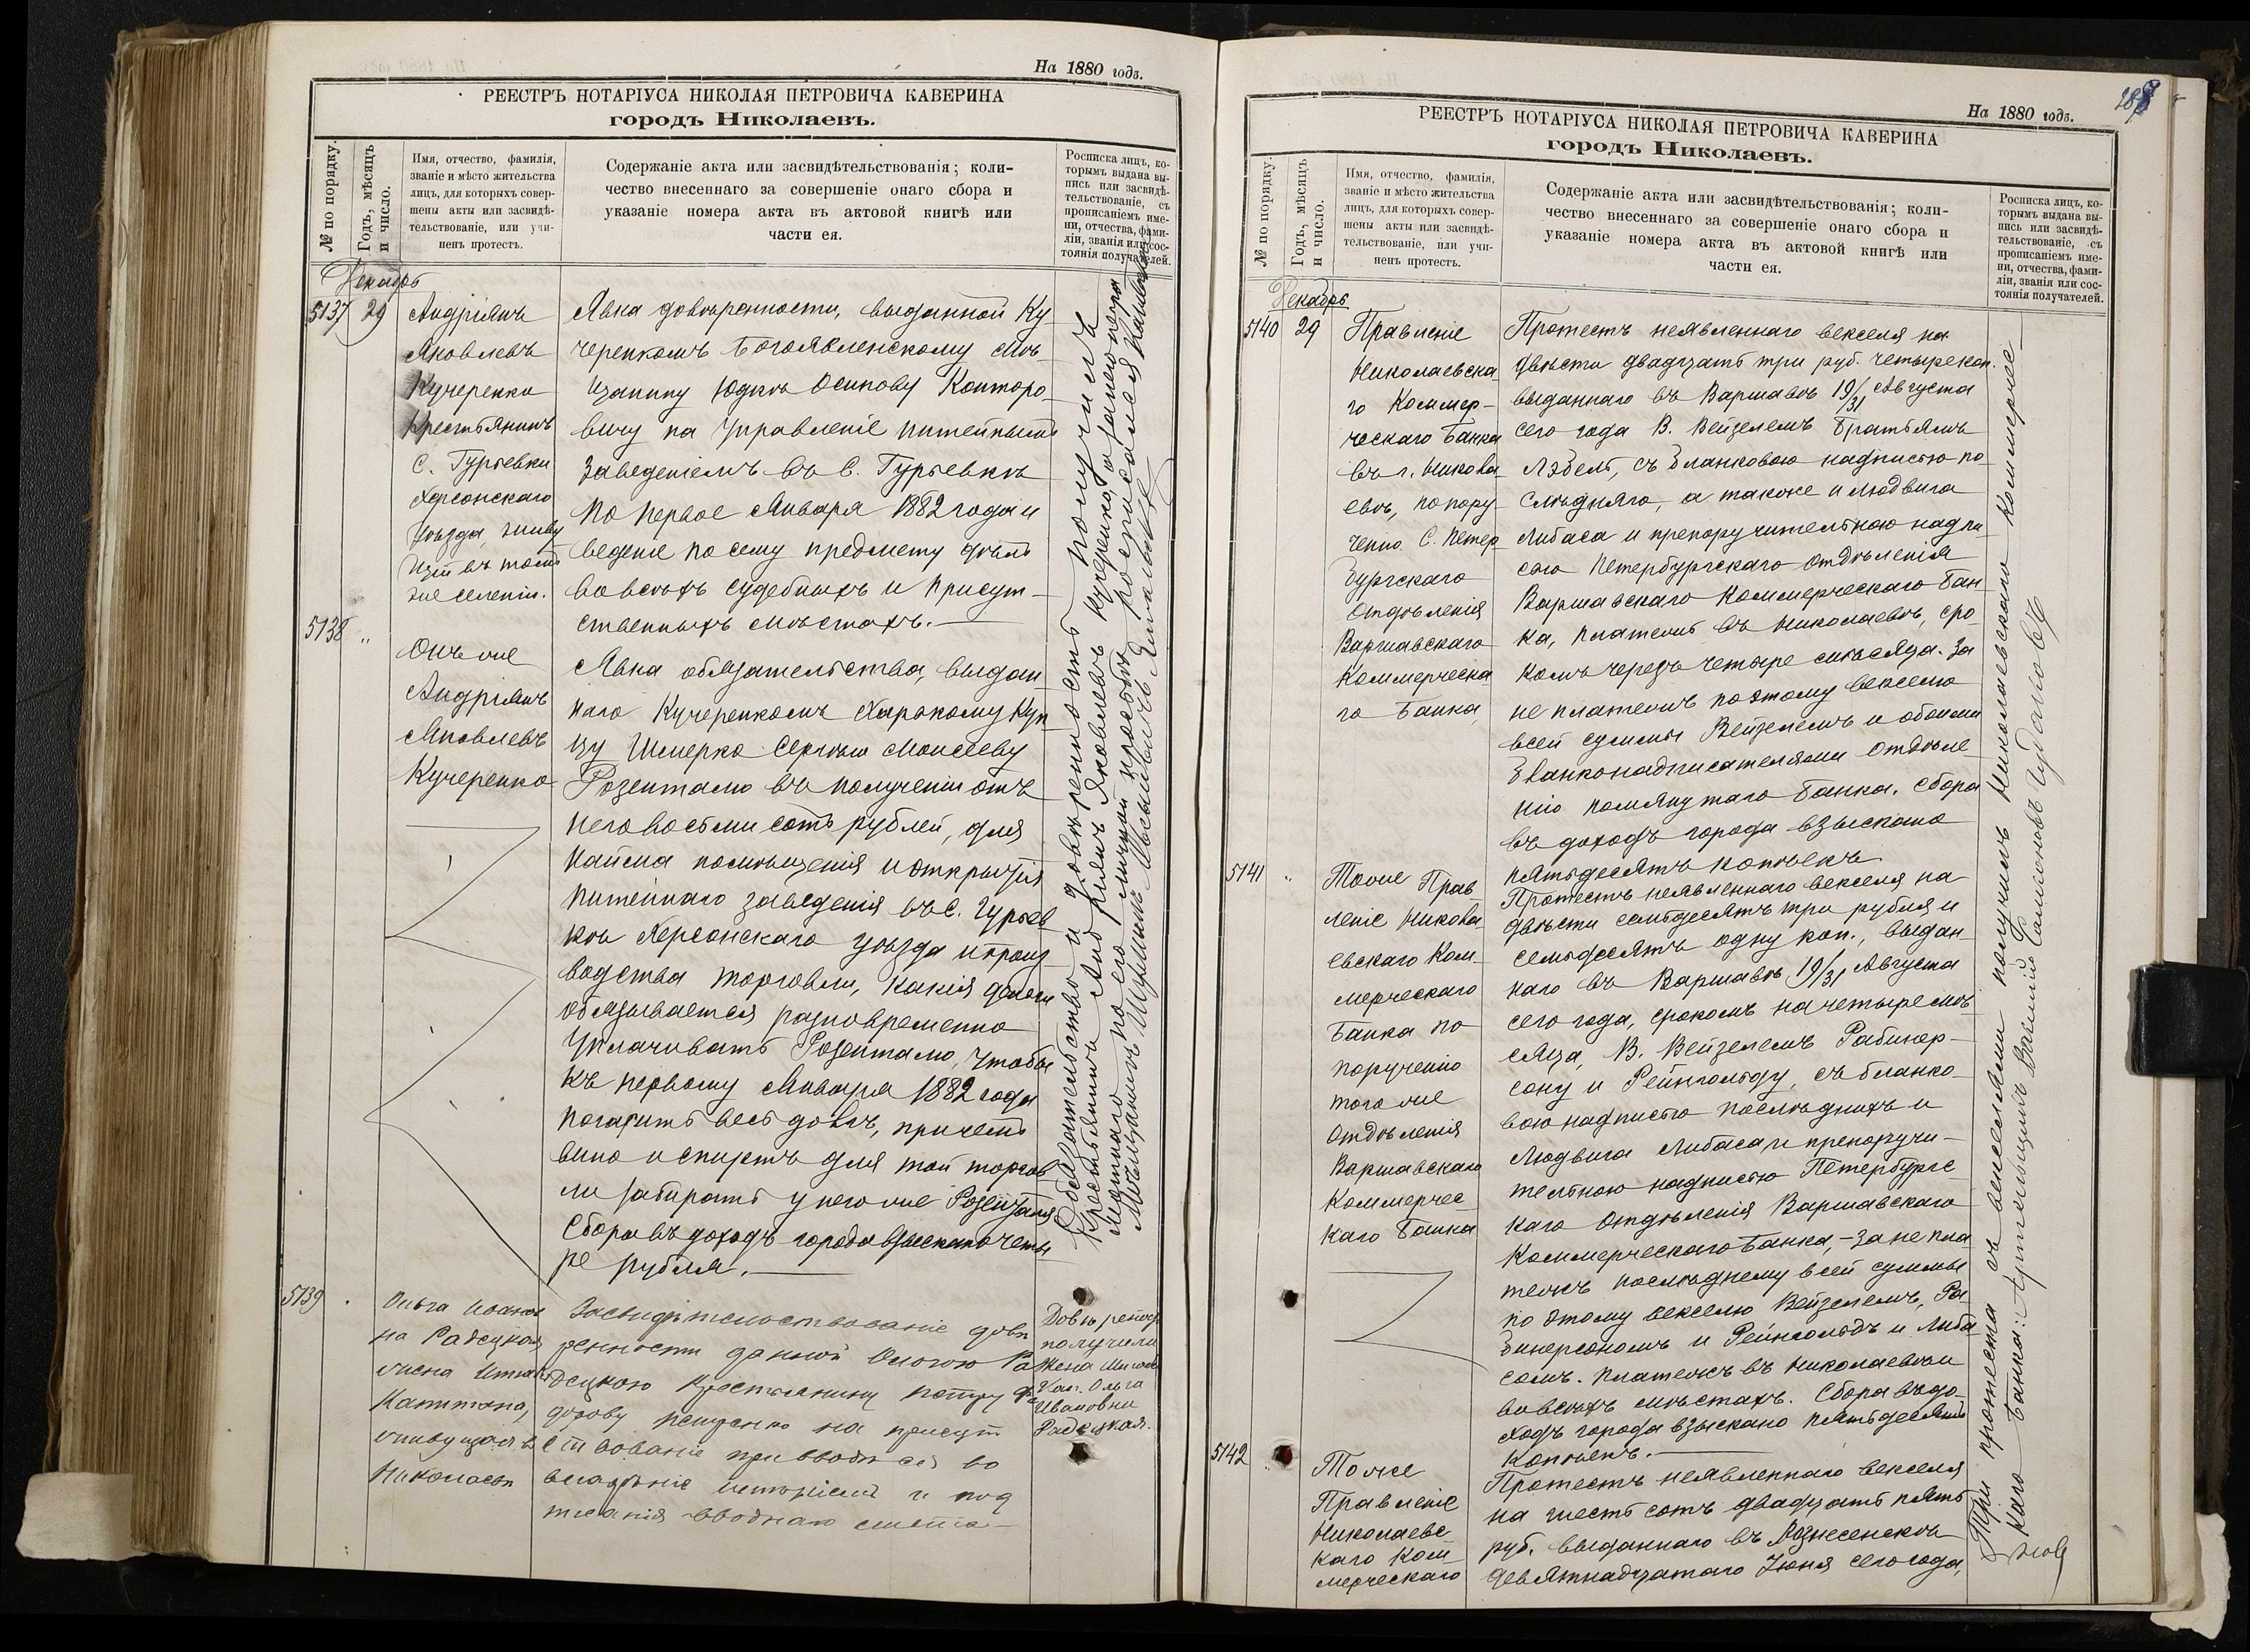 На 1880 годъ.
РЕЕСТРЪ НОТАРІУСА НИКОЛАЯ ПЕТРОВИЧА КАВЕРИНА
городъ Николаевъ.
№ по порядку.
Годъ, мѣсяцъ
и число.
Имя, отчество, фамилія,
званіе и мѣсто жительства
лицъ, для которыхъ совер-
шены акты или засвидѣ-
тельствованіе, или учи-
ненъ протестъ.
Содержаніе акта или засвидѣтельствованія; коли-
чество внесеннаго за совершеніе онаго сбора и
указаніе номера акта въ актовой книгѣ или
части ея.
Росписка лицъ, ко-
торымъ выдана вы-
пись или засвидѣ-
тельствованіе, съ
прописаніемъ име-
ни, отчества, фами-
ліи, званія или сос-
тоянія получателей.
Декабрь
5137 29
Андріянъ
Яковлевъ
Кучеренко
Крестьянинъ
С. Гурьевки
Херсонскаго
Уѣзда, живу
щій въ томъ
же селеніи.
Явка довѣренности, выданной Ку
черенкомъ Богоявленскому мѣ
щанину Юдкѣ Осипову Конторо-
вичу на Управленіе питейнымъ
Заведеніемъ въ С. Гурьевкѣ
по первое Января 1882 года и
веденіе по сему предмету дѣлъ
во всѣхъ судебныхъ и присут-
ственныхъ мѣстахъ.
5138 "
Онъ же
Андріянъ
Яковлевъ
Кучеренко
Явка обязательства, выдан
наго Кучеренкомъ Харькому Куп
цу Шмерко Сергѣю Моисееву
Розенталю въ полученіи отъ
него восьми сотъ рублей, для
найма помѣщенія и открытія
питейнаго заведенія въ С. Гурьев
кѣ Херсонскаго уѣзда и произ
водства торговли, какія деньги
обязывается разновременно
Уплачивать Розенталю, чтобы
къ первому Января 1882 года
погасить весь долгъ, причемъ
вино и спиртъ для той торгов
ли забирать у него же Розенталя
Сбора въ доходъ города взыскано четы
ре рубля.
Обязательство и довѣренность получилъ
Крестьянинъ Андріянъ Яковлевъ Кучеренко, а за него негра
мотнаго по его личной просьбѣ росписался
Мѣщанинъ
5139 "
Ольга Иванов
на Радецкая
жена Штабсъ
Капитана,
живущая въ
Николаевѣ
Засвидѣтельствованіе довѣ
ренности данной Ольгою Ра
децкою Крестьянину Петру Фе
дорову на присут
ствованіе при вводѣ ея во
владѣніе имѣніемъ и под
писанія вводнаго листа-
Довѣренность
получила
Жена Штабсъ
Кап. Ольга
Ивановна
Радецкая.
На 1880 годъ.
РЕЕСТРЪ НОТАРІУСА НИКОЛАЯ ПЕТРОВИЧА КАВЕРИНА
городъ Николаевъ.
№ по порядку.
Годъ, мѣсяцъ
и число.
Имя, отчество, фамилія,
званіе и мѣсто жительства
лицъ, для которыхъ совер-
шены акты или засвидѣ-
тельствованіе, или учи-
ненъ протестъ.
Содержаніе акта или засвидѣтельствованія; коли-
чество внесеннаго за совершеніе онаго сбора и
указаніе номера акта въ актовой книгѣ или
части ея.
Росписка лицъ, ко-
торымъ выдана вы-
пись или засвидѣ-
тельствованіе, съ
прописаніемъ име-
ни, отчества, фами-
ліи, званія или сос-
тоянія получателей.
Декабрь
5140 29
Правленіе
Николаевска-
го Коммер-
ческаго Банка
въ г. Никола
евѣ, по пору-
ченію С. Петер
бургскаго
Отдѣленія
Варшавскаго
Коммерческа
го Банка
Протестъ неявленнаго векселя на
двѣсти двадцать три руб. четыре коп.
выданнаго въ Варшавѣ 19/31 Августа
сего года В. Вейзелемъ Братьямъ
Лэбель, съ бланковою надписью по-
слѣдняго, а также и Людвига
Либаса и препоручительною надпи
сью Петербургскаго Отдѣленія
Варшавскаго Коммерческаго Бан
ка, платежъ въ Николаевѣ, сро-
комъ черезъ четыре мѣсяца. За
не платежъ по этому векселю
всей суммы Вейзелемъ и обоими
бланконадписателями Отдѣле
нію помянутаго Банка. Сбора
въ доходъ города взыскано
пятьдесятъ копѣекъ
5141 "
Тоже Прав
леніе Никола
евскаго Ком-
мерческаго
Банка по
порученію
того же
Отдѣленія
Варшавскаго
Коммерчес-
каго Банка
Протестъ неявленнаго векселя на
двѣсти семьдесятъ три рубля и
семьдесятъ одну коп., выдан-
наго въ Варшавѣ, 19/31 Августа
сего года, срокомъ на четыре мѣ
сяца, В. Вейзелемъ Рабинер-
сону и Рейнгольду, съ бланко-
вою надписью послѣднихъ и
Людвига Либаса, и препоручи-
тельною надписью Петербургс
каго Отдѣленія Варшавскаго
Коммерческаго Банка,-за не пла
тежъ послѣднему всей суммы
по этому векселю Вейзелемъ, Ра
бинерсономъ и Рейнгольдъ и Либа
сомъ. Платежъ въ Николаевѣ и
во всѣхъ мѣстахъ. Сбора въ до-
ходъ города взыскано пятьдесятъ
копѣекъ.
5142 "
Тоже
Правленіе
Николаевс
каго Ком-
мерческаго
Протестъ неявленнаго векселя
на шесть сотъ двадцать пять
руб. выданнаго въ Вознесенскѣ
девятнадцатаго Іюня сего года,
Три протеста съ векселями получилъ Николаевскаго Коммерчес-
каго Банка: Артельщикъ Василій